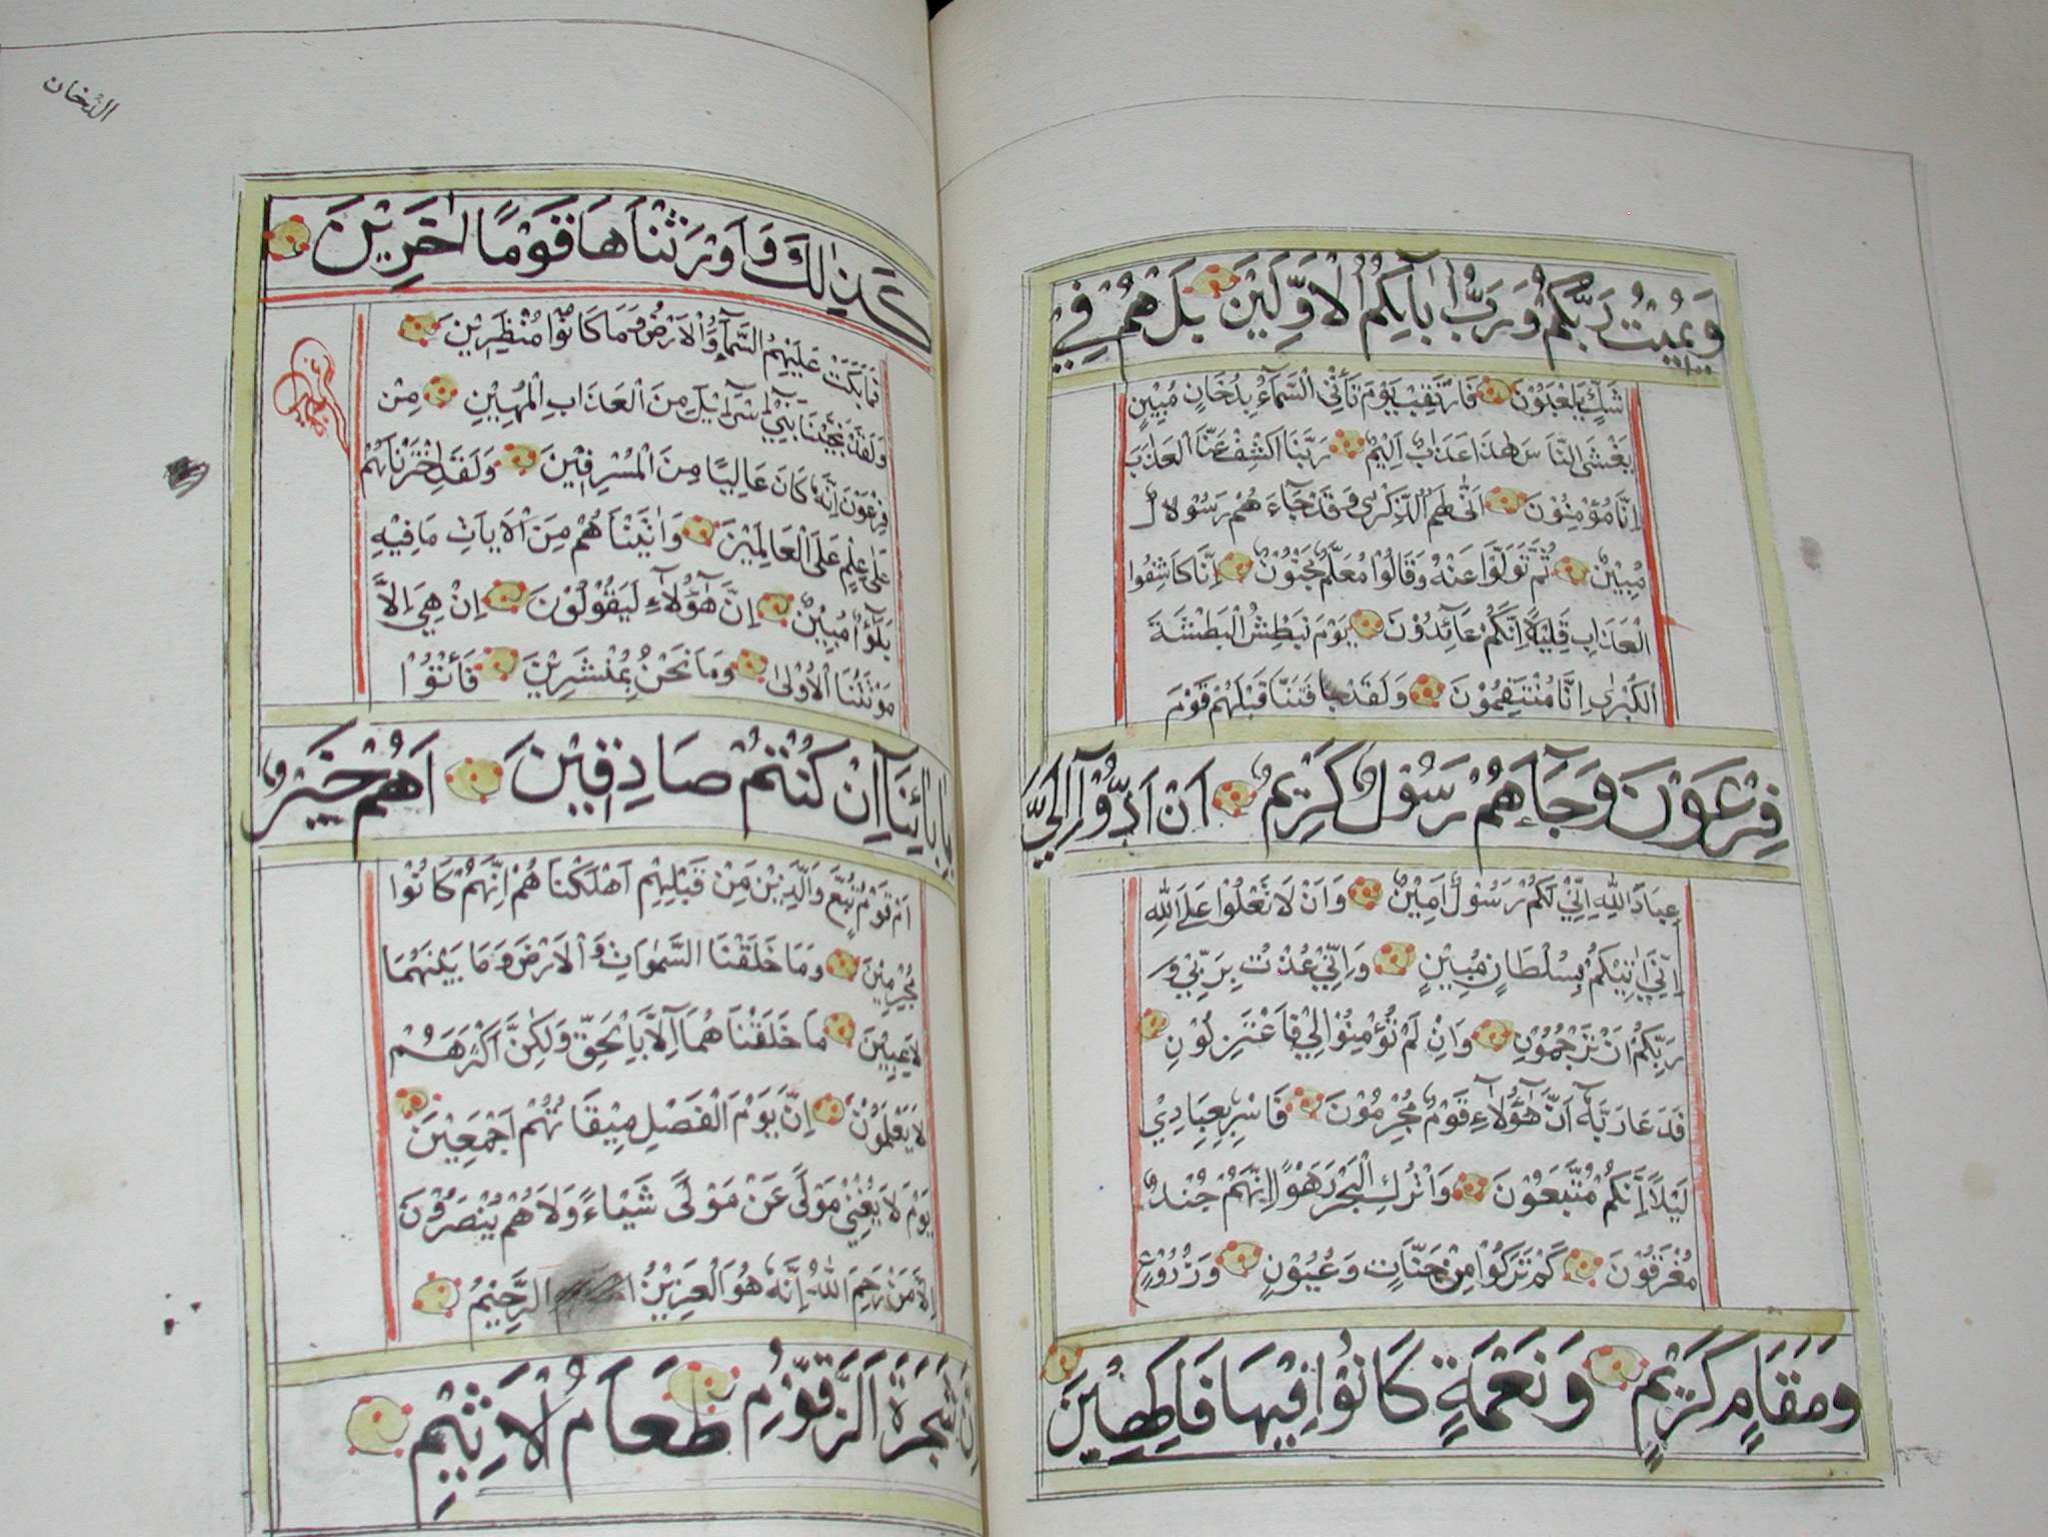 وَيُمِيْتُ رَبُّكُمْ وَرَبُّ اٰبَآئِكُمُ الْاَوَّلِيْنَ بَلْ هُمْ فِيْ
شَكٍّ يَلْعَبُوْنَ فَارْتَقِبْ يَوْمَ تَأْتِى السَّمَآءُ بِدُخَانٍ مُبِيْنٍ
يَغْشَى النَّاسَ هٰذَا عَذَابٌ اَلِيْمٌ رَبَّنَا اكْشِفْ عَنَّا الْعَذَابَ
اِنَّا مُؤْمِنُوْنَ اَنّٰى لَهُمُ الذِّكْرٰى وَقَدْ جَآءَ هُمْ رَسُوْلٌ
مُبِيْنٌ ثُمَّ تَوَلَّوْا عَنْهُ وَقَالُوْا مُعَلَّمٌ مَجْنُوْنٌ اِنَّا كَاشِفُوا
الْعَذَابِ قَلِيْلًا اِنَّكُمْ عَآئِدُوْنَ يَوْمَ نَبْطِشُ الْبَطْشَةَ
الْكُبْرٰى اِنَّا مُنْتَقِمُوْنَ وَلَقَدْ فَتَنَّا قَبْلَهُمْ قَوْمَ
فِرْعَوْنَ وَجَآءَهُمْ رَسُوْلٌ كَرِيْمٌ اَنْ اَدُّوْآ اِلَيَّ
عِبَادَ اللّٰهِ اِنِّيْ لَكُمْ رَسُوْلٌ اَمِيْنٌ وَاَنْ لَا تَعْلُوْا عَلَى اللّٰهِ
اِنِّيْ اٰتِيْكُمْ بِسُلْطَانٍ مُبِيْنٍ وَاِنِّيْ عُذْتُ بِرَبِّيْ وَ
رَبِّكُمْ اَنْ تَرْجُمُوْنِ وَاِنْ لَمْ تُؤْمِنُوْا لِيْ فَاعْتَزِلُوْنِ
فَدَعَا رَبَّهٗ اَنَّ هٰٓؤُلَآءِ قَوْمٌ مُجْرِمُوْنَ فَاَسْرِ بِعِبَادِيْ
لَيْلًا اِنَّكُمْ مُتَّبَعُوْنَ وَاتْرُكِ الْبَحْرَ رَهْوًا اِنَّهُمْ جُنْدٌ
مُغْرَقُوْنَ كَمْ تَرَكُوْا مِنْ جَنَّاتٍ وَعُيُوْنٍ وَزُرُوْعٍ
وَمَقَامٍ كَرِيْمٍ وَنَعْمَةٍ كَانُوْا فِيْهَا فَاكِهِيْنَ
الدخان
كَذٰلِكَ وَاَوْرَثْنَاهَا قَوْمًا اٰخَرِيْنَ
فَمَا بَكَتْ عَلَيْهِمُ السَّمَآءُ وَالْاَرْضُ وَمَا كَانُوْا مُنْظَرِيْنَ
وَلَقَدْ نَجَّيْنَا بَنِيْٓ اِسْرَآئِيْلَ مِنَ الْعَذَابِ الْمُهِيْنِ مِنْ
فِرْعَوْنَ اِنَّهٗ كَانَ عَالِيًا مِنَ الْمُسْرِفِيْنَ وَلَقَدِ اخْتَرْنَاهُمْ
عَلٰى عِلْمٍ عَلَى الْعَالَمِيْنَ وَاٰتَيْنَاهُمْ مِنَ الْاٰيَاتِ مَا فِيْهِ
بَلٰٓؤٌا مُبِيْنٌ اِنَّ هٰٓؤُلَآءِ لَيَقُوْلُوْنَ اِنْ هِيَ اِلَّا
مَوْتَتُنَا الْاُوْلٰى وَمَا نَحْنُ بِمُنْشَرِيْنَ فَأْتُوْا
بِاٰبَآئِنَآ اِنْ كُنْتُمْ صَادِقِيْنَ اَهُمْ خَيْرٌ
اَمْ قَوْمُ تُبَّعٍ وَالَّذِيْنَ مِنْ قَبْلِهِمْ اَهْلَكْنَاهُمْ اِنَّهُمْ كَانُوْا
مُجْرِمِيْنَ وَمَا خَلَقْنَا السَّمٰوَاتِ وَالْاَرْضَ وَمَا بَيْنَهُمَا
لَاعِبِيْنَ مَا خَلَقْنَاهُمَآ اِلَّا بِالْحَقِّ وَلٰكِنَّ اَكْثَرَهُمْ
لَا يَعْلَمُوْنَ اِنَّ يَوْمَ الْفَصْلِ مِيْقَاتُهُمْ اَجْمَعِيْنَ
يَوْمَ لَا يُغْنِيْ مَوْلًى عَنْ مَوْلًى شَيْـًٔا وَلَا هُمْ يُنْصَرُوْنَ
اِلَّا مَنْ رَحِمَ اللّٰهُ اِنَّهٗ هُوَ الْعَزِيْزُ الرَّحِيْمُ
اِنَّ شَجَرَةَ الزَّقُّوْمِ طَعَامُ الْاَثِيْمِ